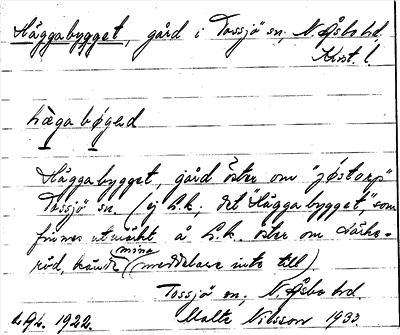 Häggabygget, gård i Tossjö sn, N. Åsbo hd.
Krist. l.
hæga bøged
Häggabygget, gård öster om "jøstorp"
Tossjö sn. (ej L.k., det "Häggabygget", som
finnes utmärkt å L.k. öster om
röd, kände mina meddelare inte till).
Tossjö sn, N. Åsbo hd.
1922. Malte Nilsson 1933.